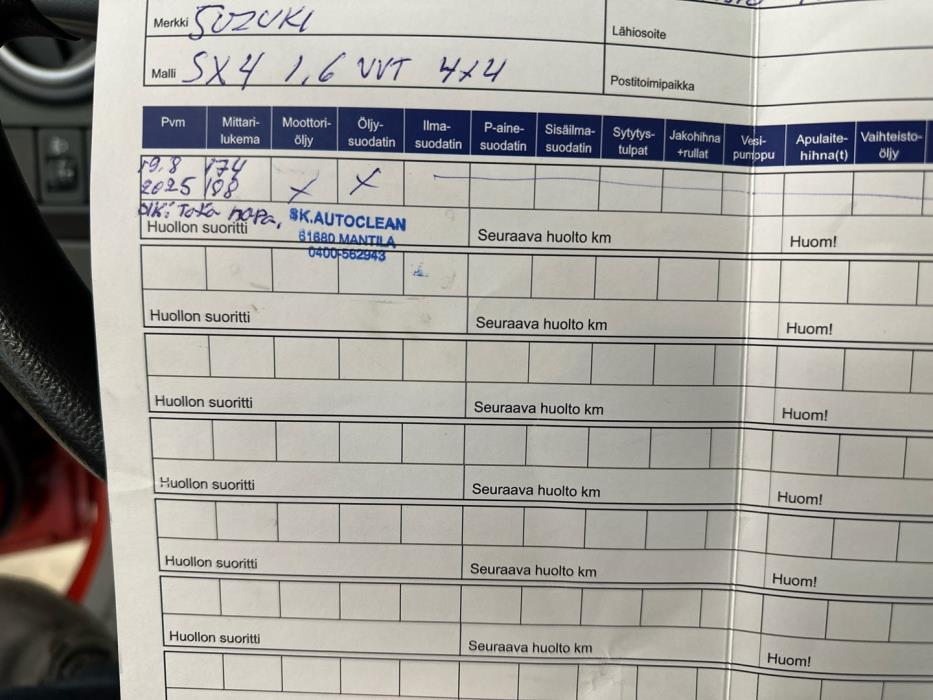 Merkki SUZUKI
Lähiosoite
Malli SX4 1,6 VVT 4x4
Postitoimipaikka
Pvm Mittari-lukema Moottori-öljy Öljy-suodatin Ilma-suodatin P-aine-suodatin Sisäilma-suodatin Sytytys-tulpat Jakohihna +rullat Vesi-pumppu Apulaite-hihna(t) Vaihteisto-öljy
19.8 174
2025 198 X X
Taka napa,
Huollon suoritti
SK.AUTOCLEAN
61680 MANTILA
0400-562943
Seuraava huolto km
Huom!
Huollon suoritti Seuraava huolto km Huom!
Huollon suoritti Seuraava huolto km Huom!
Huollon suoritti Seuraava huolto km Huom!
Huollon suoritti Seuraava huolto km Huom!
Huollon suoritti Seuraava huolto km Huom!